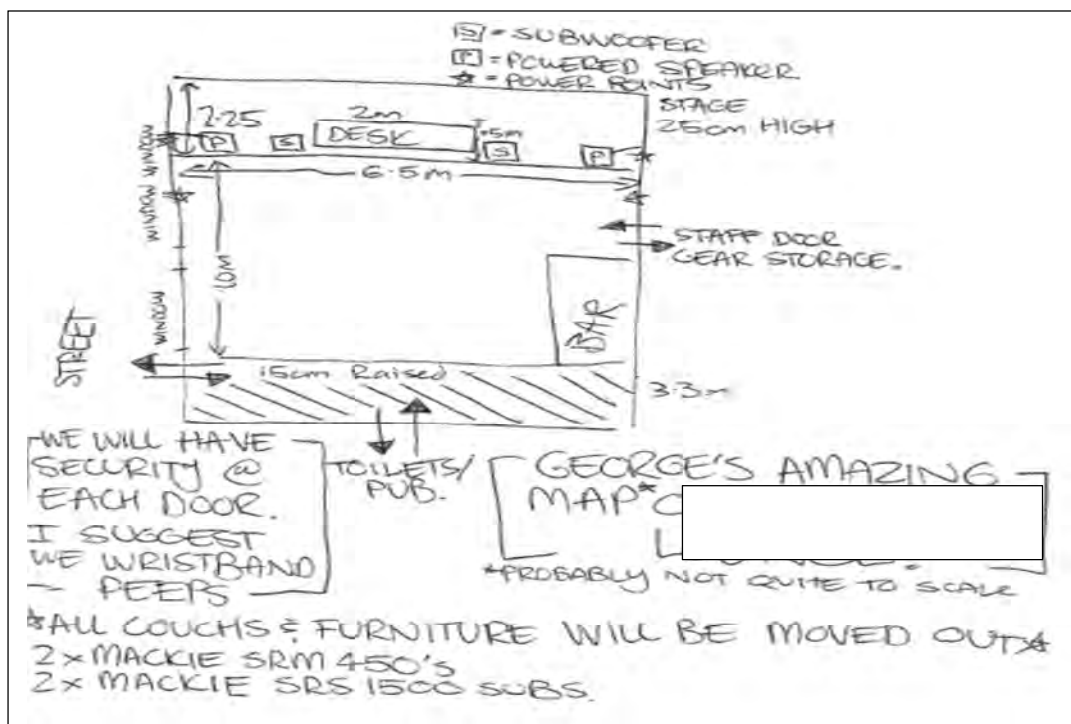 [S] = SUBWOOFER
[P] = POWERED SPEAKER
☆ = POWER POINTS
STAGE
25cm HIGH
2.25
2m
DESK
.5m
P
S
S
P
6.5m
WINDOW
WINDOW
WINDOW
10m
STAFF DOOR
GEAR STORAGE.
BAR
STREET
15cm Raised
3.3m
WE WILL HAVE
SECURITY @
EACH DOOR.
I SUGGEST
WE WRISTBAND
PEEPS
TOILETS/
PUB.
GEORGE'S AMAZING
MAP*
*PROBABLY NOT QUITE TO SCALE
*ALL COUCHS & FURNITURE WILL BE MOVED OUT*
2x MACKIE SRM 450's
2x MACKIE SRS 1500 SUBS.